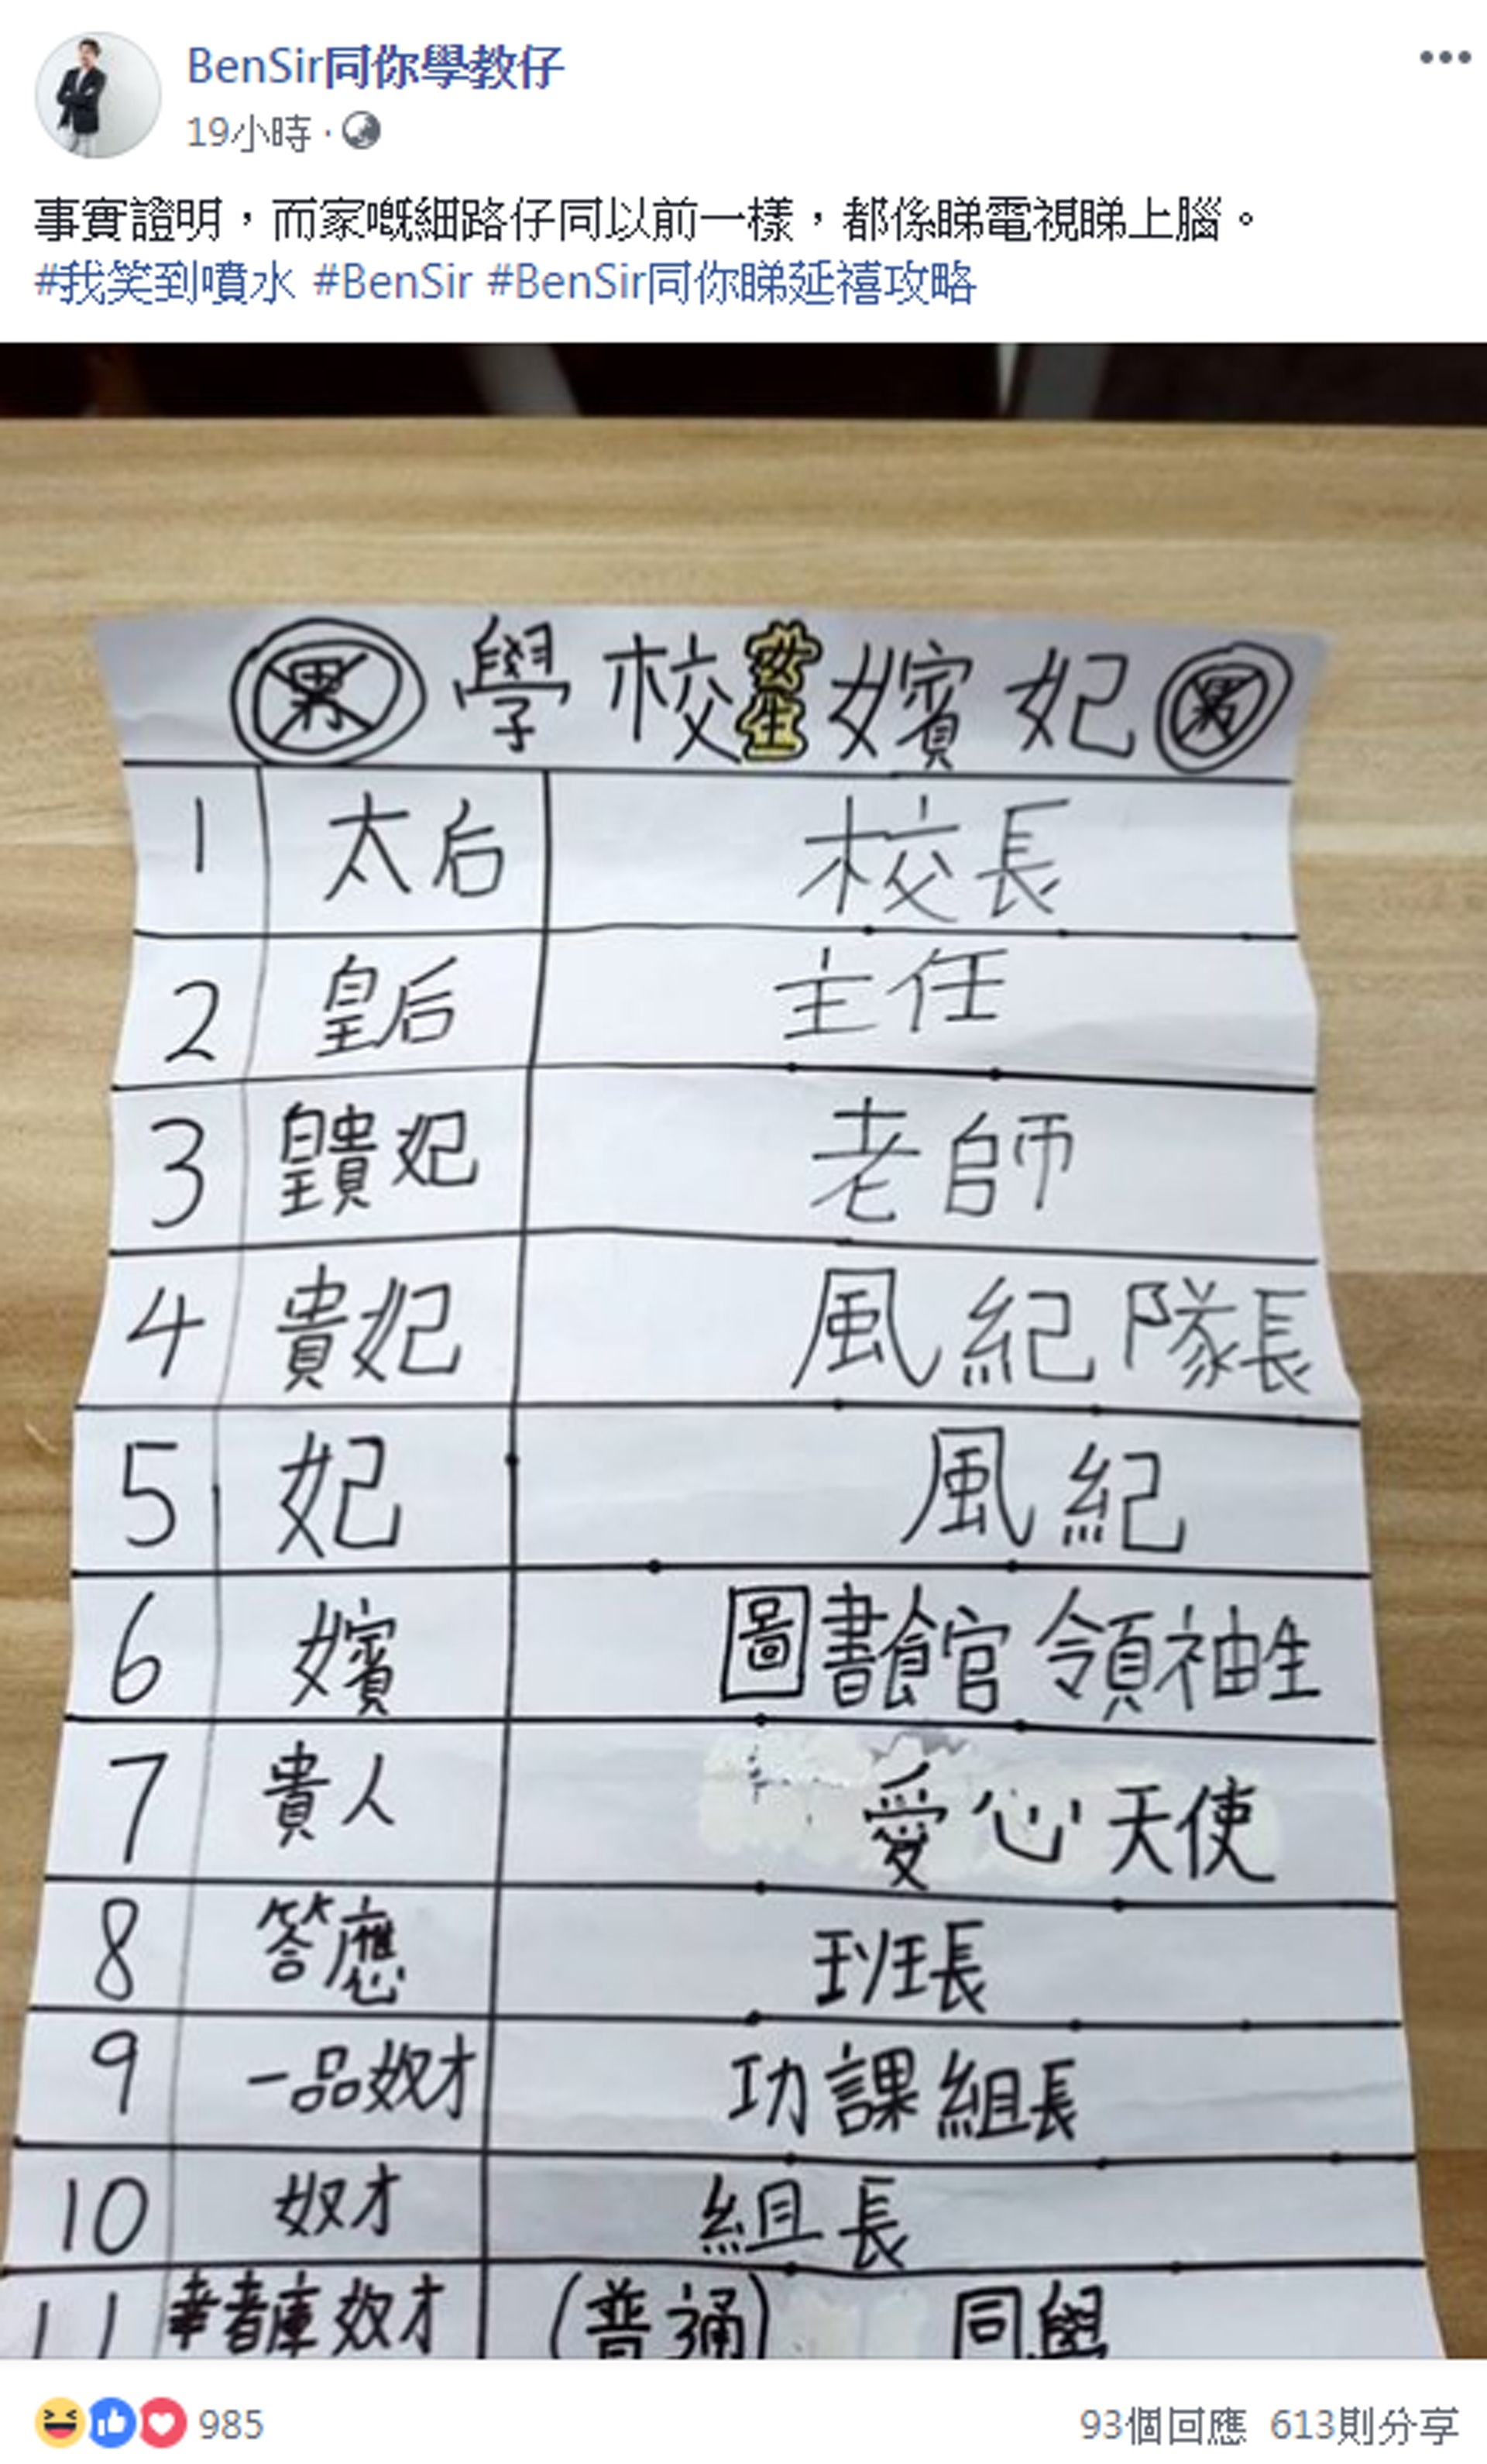 BenSir同你學教仔
19小時 ·
事實證明，而家嘅細路仔同以前一樣，都係睇電視睇上腦。
#我笑到噴水 #BenSir #BenSir同你睇延禧攻略
男 學校女生嬪妃 男
1 太后 校長
2 皇后 主任
3 皇貴妃 老師
4 貴妃 風紀隊長
5 妃 風紀
6 嬪 圖書館領袖生
7 貴人 愛心天使
8 答應 班長
9 一品奴才 功課組長
10 奴才 組長
11 辛者庫奴才 (普通) 同學
985 93個回應 613則分享